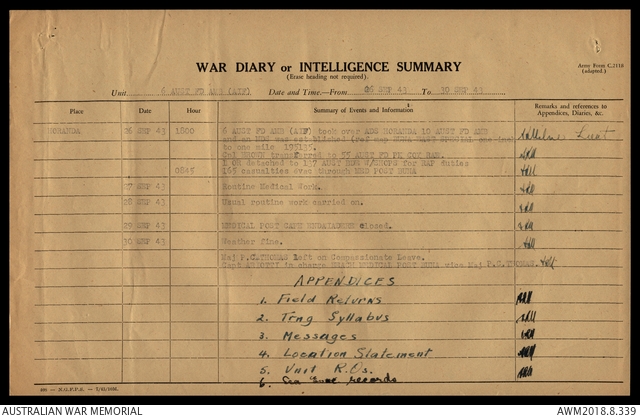 WAR DIARY or INTELLIGENCE SUMMARY
(Erase heading not required).
Army Form C.2118
(adapted.)
Unit 6 AUST FD AMB (AIF) Date and Time.—From 26 SEP 43 To 30 SEP 43
Place Date Hour Summary of Events and Information Remarks and references to
Appendices, Diaries, &c.
HORANDA 26 SEP 43 1800 6 AUST FD AMB (AIF) took over ADS HORANDA 10 AUST FD AMB
and an MDS was established (ref map BUNA SPECIAL one inch
to one mile 195135.
Cpl BROWN transferred to 55 AUST FD PK COY RAE.
1 OR detached to 137 AUST BDE W/SHOPS for RAP duties
0845 165 casualties evac through MED POST BUNA
27 SEP 43 Routine Medical Work.
28 SEP 43 Usual routine work carried on.
29 SEP 43 MEDICAL POST CAPE ENDAIADERE closed.
30 SEP 43 Weather fine.
Maj P.C.THOMAS left on Compassionate Leave.
Capt in charge BEACH MEDICAL POST BUNA vice Maj P.C.THOMAS.
APPENDICES
1. Field Returns
2. Trng Syllabus
3. Messages
4. Location Statement
5. Unit R.Os.
6. records
AUSTRALIAN WAR MEMORIAL AWM2018.8.339